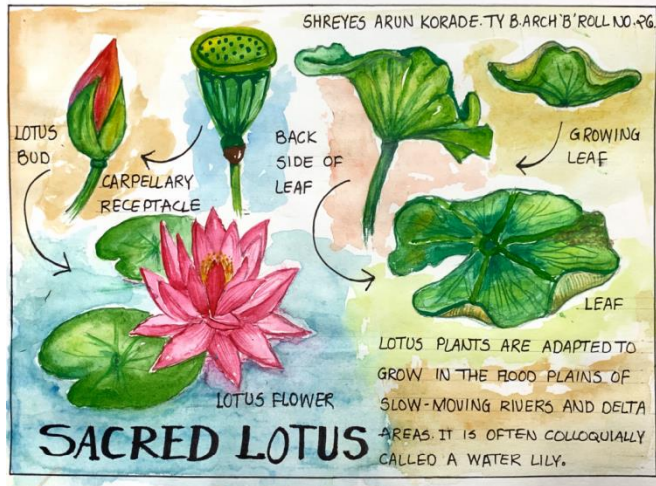 SHREYES ARUN KORADE. TY B.ARCH 'B' ROLL NO. 26.
LOTUS
BUD
CARPELLARY
RECEPTACLE
BACK
SIDE OF
LEAF
GROWING
LEAF
LEAF
LOTUS FLOWER
SACRED LOTUS
LOTUS PLANTS ARE ADAPTED TO
GROW IN THE FLOOD PLAINS OF
SLOW-MOVING RIVERS AND DELTA
AREAS. IT IS OFTEN COLLOQUIALLY
CALLED A WATER LILY.